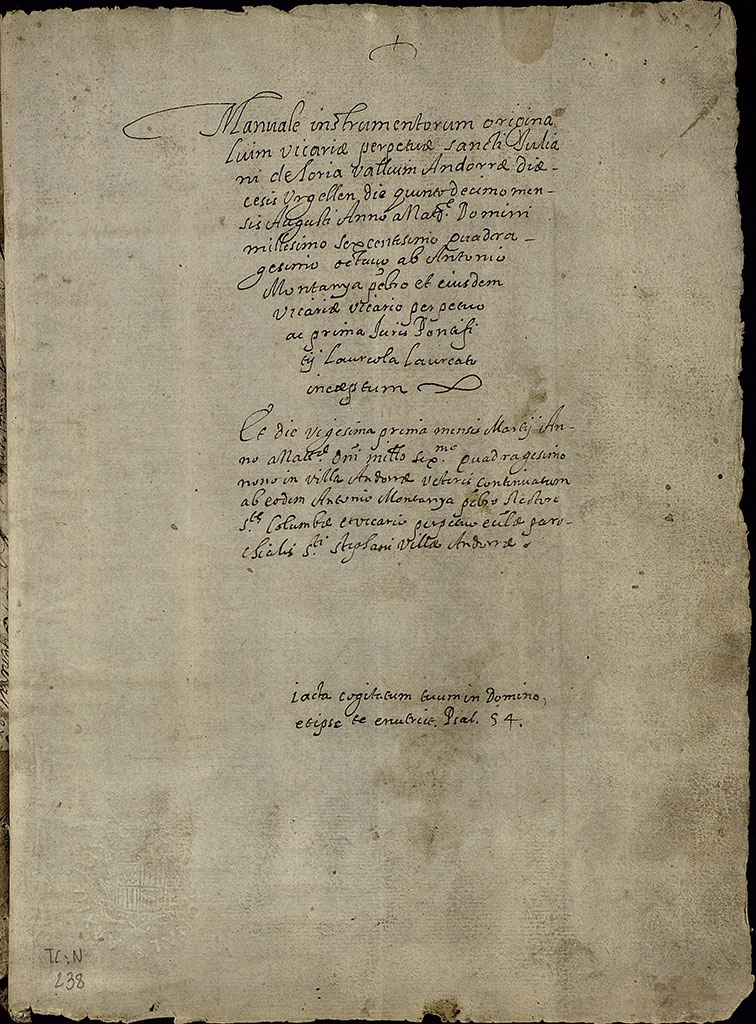 1
Manuale instrumentorum origina
luim vicariæ perpetuæ sancti Julia
ni de loria vallium Andorræ diæ-
cesis Urgellen. die quinto decimo men-
sis Augusti Anno a Nat.e Domini
millesimo sexcentesimo quadra-
gesimo octavo ab Antonio
Montanya pbro et eiusdem
vicariæ vicario perpetuo
ac prima Iuris Pontifi
tij Laureola Laureato
incæptum
Et die vigesima prima mensis Martij An-
no a Nat.e Dni millo sex.mo quadragesimo
nono in villa Andorræ veteris continuatum
ab eodem Antonio Montanya pbro Rectore
S.tæ Columbæ et vicario perpetuo eclæ paro-
chialis S.ti Stephani villæ Andorræ.
Iacta cogitatum tuum in Domino,
et ipse te enutriet. Psal. 54.
T.C.N
238